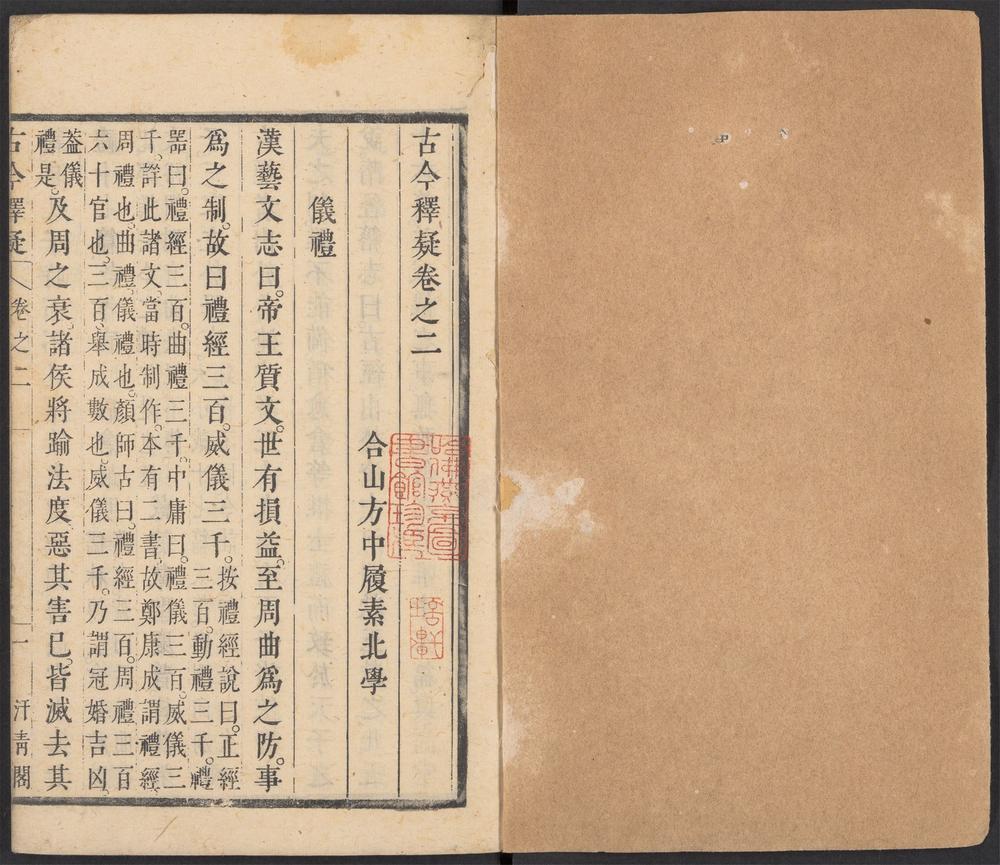 古今釋疑卷之二
合山方中履素北學
儀禮
漢藝文志曰。帝王質文。世有損益。至周曲爲之防。事
爲之制。故曰禮經三百。威儀三千。
按禮經說曰。正經
三百。動禮三千。禮
器曰。禮經三百。曲禮三千。中庸曰。禮儀三百。威儀三
千。詳此諸文。當時制作。本有二書。故鄭康成謂禮經
周禮也。曲禮。儀禮也。顏師古曰。禮經三百。周禮三百
六十官也。三百。舉成數也。威儀三千。乃謂冠婚吉凶
葢儀
禮是。
及周之衰。諸侯將踰法度。惡其害已。皆滅去其
古今釋疑 卷之二 一 汗青閣
哈佛燕京圖
書館珍藏印